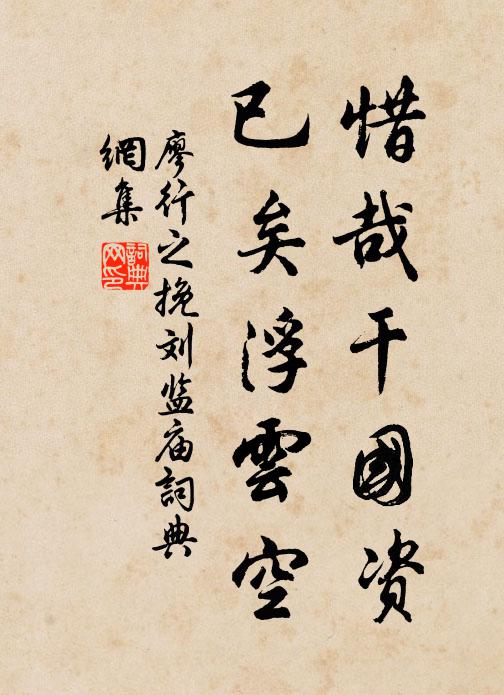 惜哉干國资
已矣浮雲空
廖行之挽刘监庙詞典
網集
詞典
网印